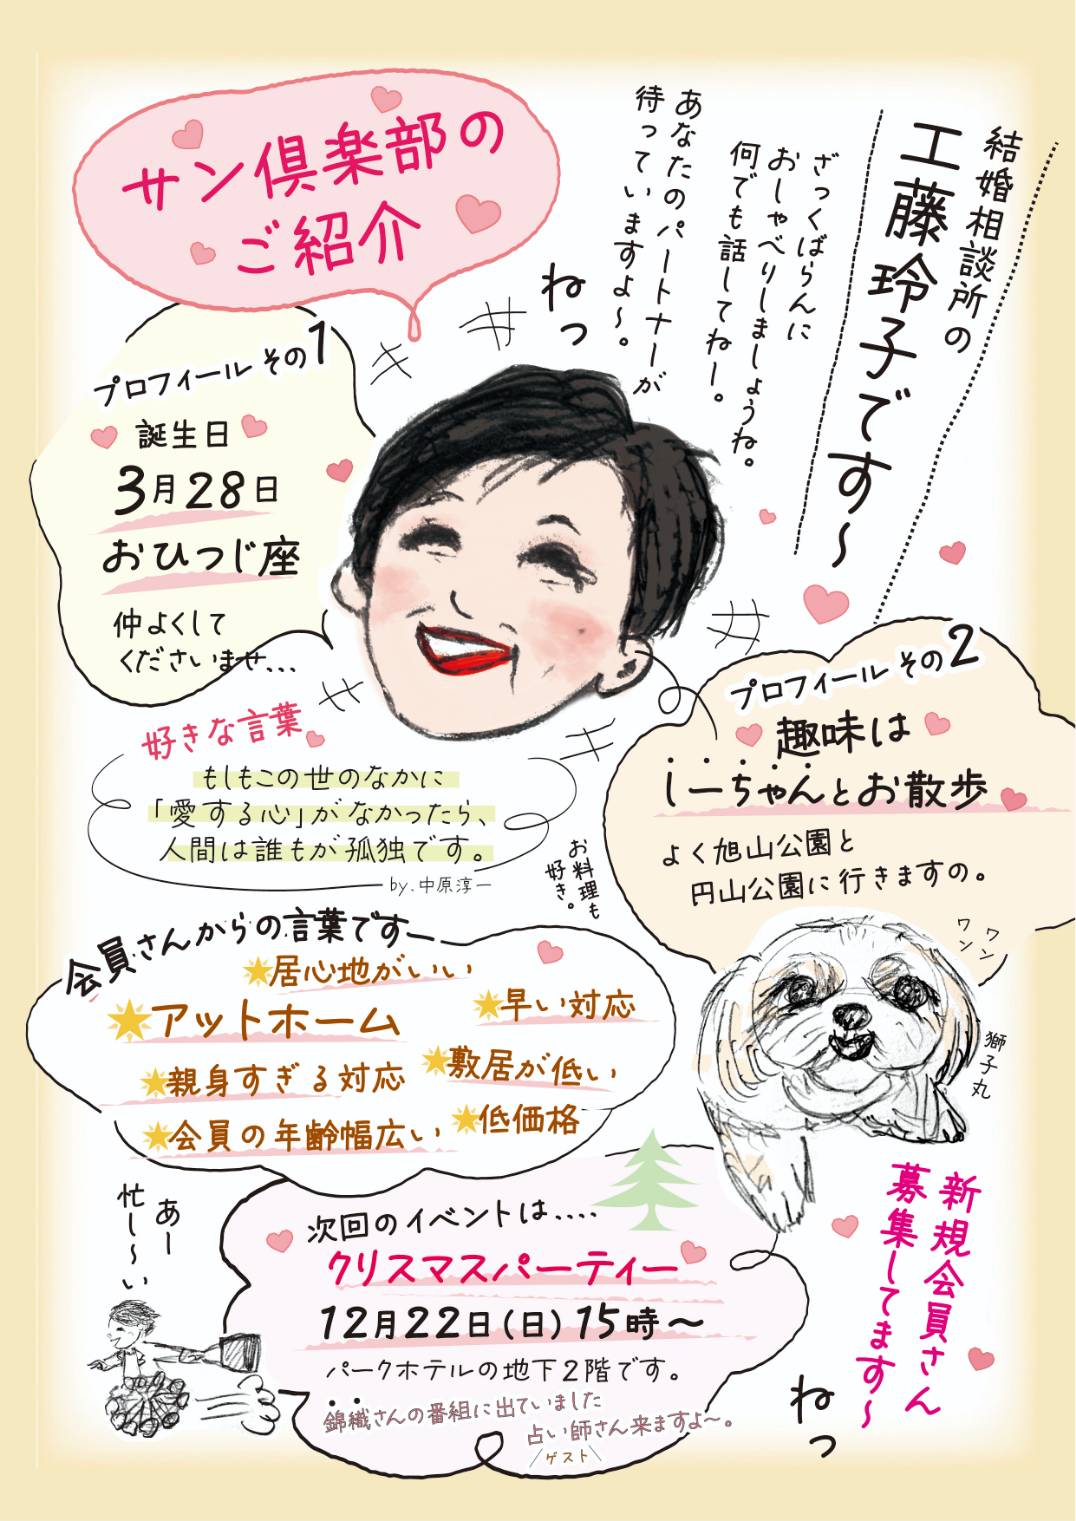 サン倶楽部の
ご紹介
結婚相談所の
工藤玲子です～
ざっくばらんに
おしゃべりしましょうね。
何でも話してねー。
あなたのパートナーが
待っていますよ～。
ねっ
プロフィール その1
誕生日
3月28日
おひつじ座
仲よくして
くださいませ...
プロフィール その2
趣味は
しーちゃんとお散歩
よく旭山公園と
円山公園に行きますの。
お料理も
好き。
好きな言葉
もしもこの世のなかに
「愛する心」がなかったら、
人間は誰もが孤独です。
by.中原淳一
ワン
ワン
獅子丸
会員さんからの言葉ですー
居心地がいい
アットホーム
早い対応
親身すぎる対応
敷居が低い
会員の年齢幅広い
低価格
あー
忙し～い
次回のイベントは....
クリスマスパーティー
12月22日(日)15時～
パークホテルの地下2階です。
錦織さんの番組に出ていました
占い師さん来ますよ～。
ゲスト
新規会員さん
募集してます～
ねっ